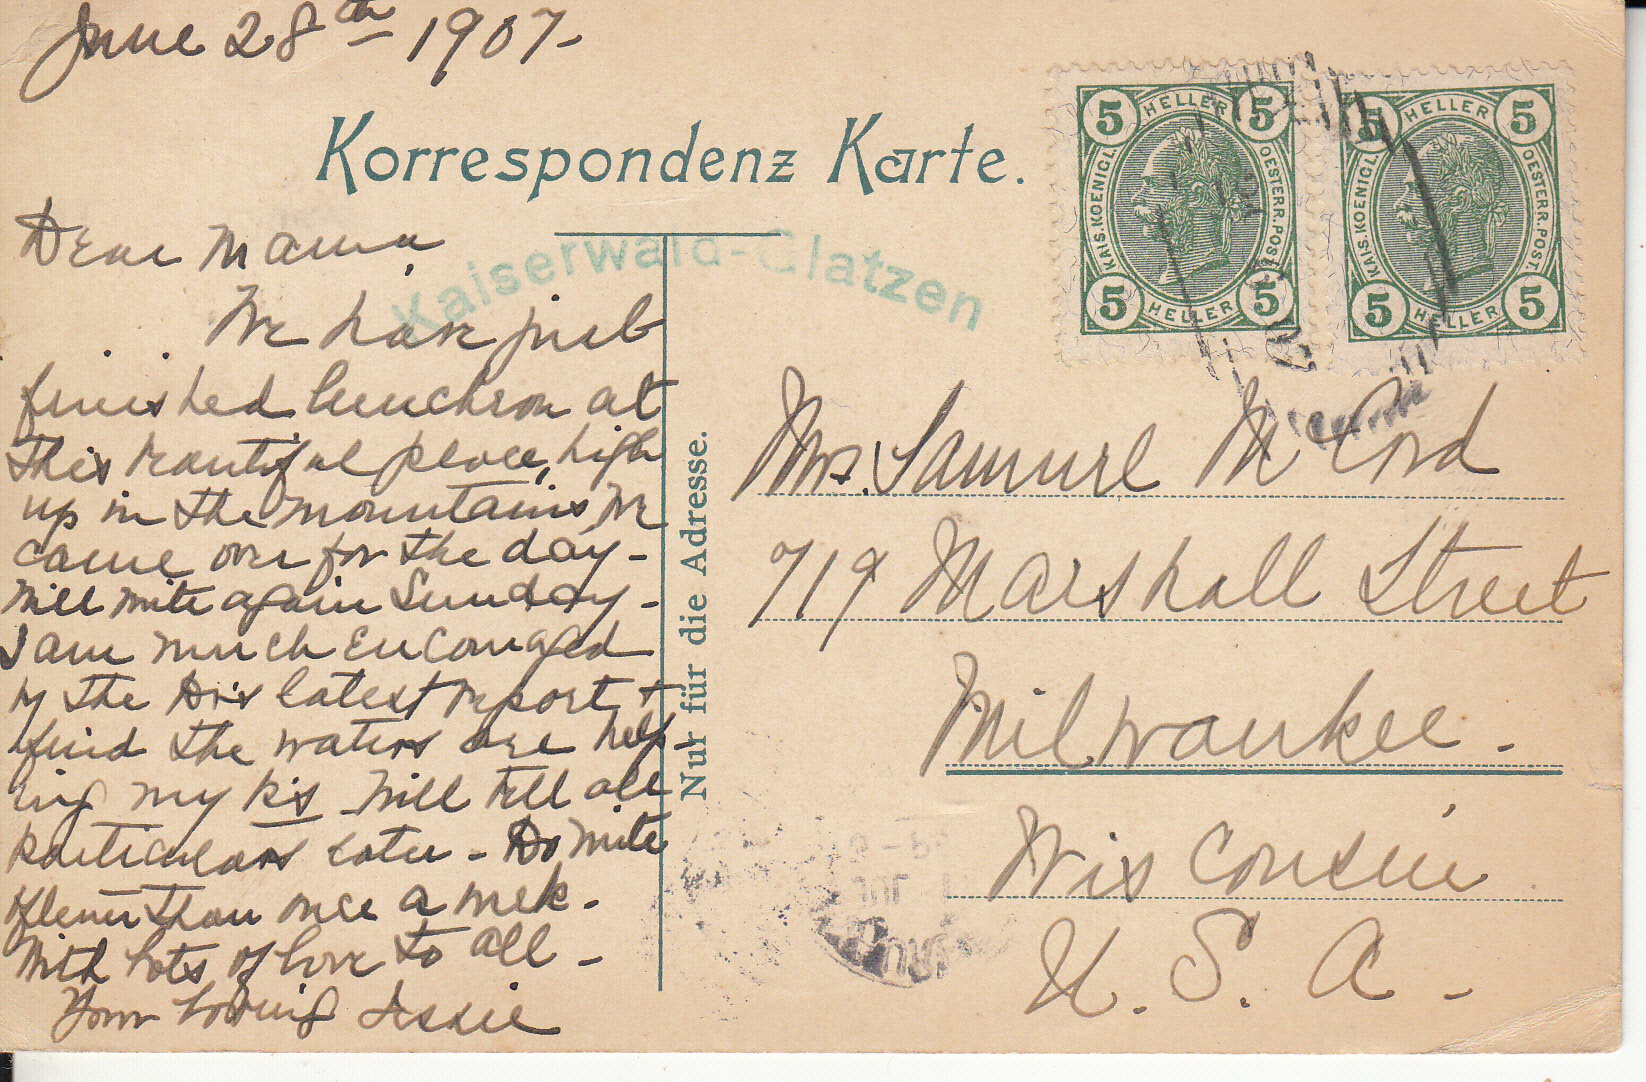 June 28th - 1907-
Korrespondenz Karte.
Kaiserwald-Glatzen
5 HELLER 5
KAIS. KOENIGL. OESTERR. POST.
5 HELLER 5
5 HELLER 5
KAIS. KOENIGL. OESTERR. POST.
5 HELLER 5
Dear Mama,
We have just
finished luncheon at
this beautiful place, high
up in the mountains, We
came over for the day -
Will write again Sunday -
I am much encouraged
by the Dr's latest report +
find the waters are help-
ing my k's Will tell all
particulars later - Do write
oftener than once a week -
With lots of love to all -
Your loving Essie
Nur für die Adresse.
Mrs. Samuel McCord
719 Marshall Street
Milwaukee -
Wisconsin
U. S. A -